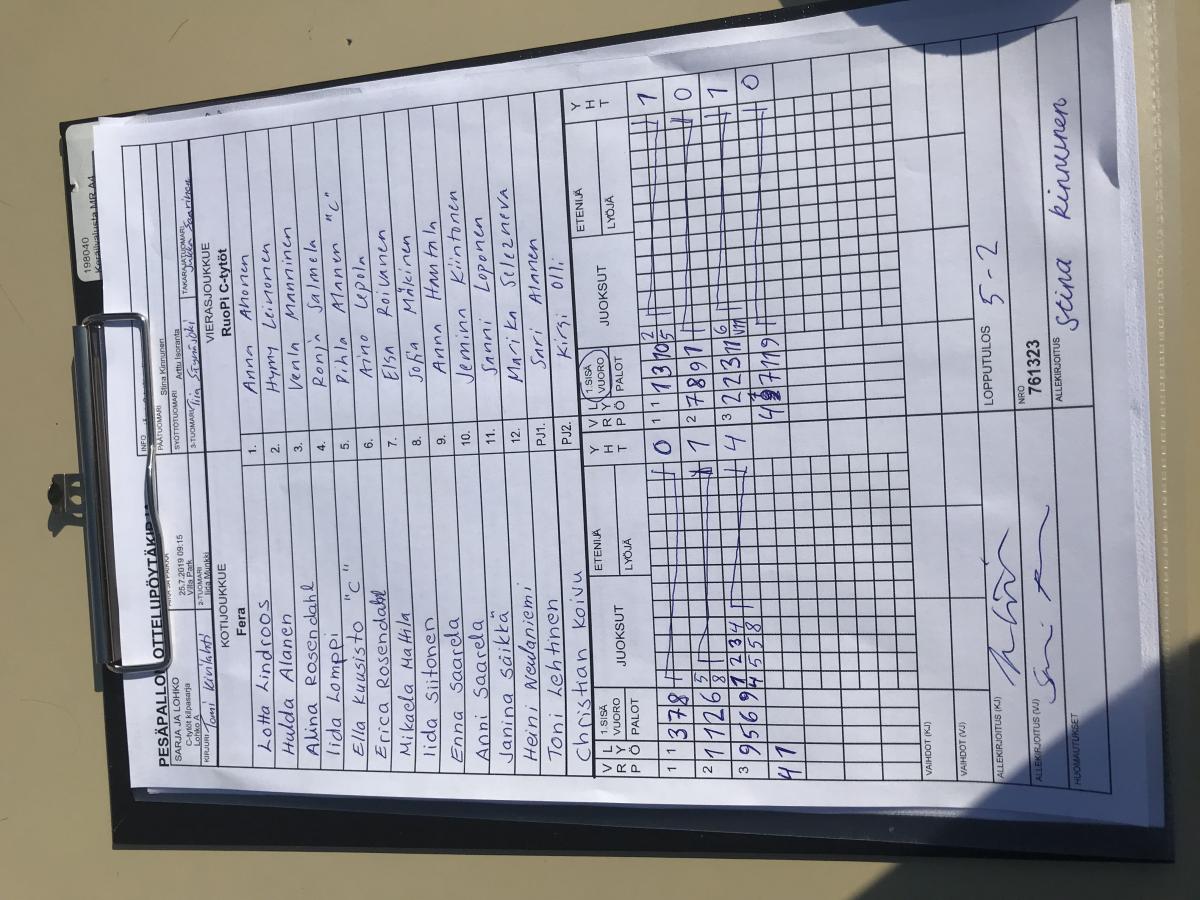 198040
Keräilyalusta MR A4
PESÄPALLO OTTELUPÖYTÄKIRJA
SARJA JA LOHKO
C-tytöt kilpasarja
Lohko A
25.7.2019 09:15
Villa Park
INFO
PÄÄTUOMARI Stina Kinnunen
SYÖTTÖTUOMARI Arttu Isoranta
KIRJURI Tomi Kivilahti
2-TUOMARI Iida Munkki
3-TUOMARI Tiia
TAKARAJATUOMARI Jukka Saarinen
KOTIJOUKKUE VIERASJOUKKUE
Fera RuoPi C-tytöt
Lotta Lindroos 1. Anna Ahonen
Hulda Alanen 2. Hymy Leinonen
Alina Rosendahl 3. Venla Manninen
Iida Lomppi 4. Ronja Salmela
Ella Kuusisto "C" 5. Pihla Alanen "C"
Erica Rosendahl 6. Aino Lepola
Mikaela Mattila 7. Elsa Roivanen
Iida Siitonen 8. Sofia Mäkinen
Enna Saarela 9. Anna Hauntala
Anni Saarela 10. Jemina Kiintonen
Janina Säikkä 11. Sanni Loponen
Heini Neulaniemi 12. Marika Selezneva
Toni Lehtinen PJ1. Sari Alanen
Christian Koivu PJ2. Kirsi Olli
VRP LYÖ 1.SISÄ VUORO PALOT JUOKSUT ETENIJÄ LYÖJÄ YHT VRP LYÖ 1.SISÄ VUORO PALOT JUOKSUT ETENIJÄ LYÖJÄ YHT
1 1 3 7 8 0 1 1 1 3 10 2 5 1
2 1 1 2 6 5 8 1 2 7 8 9 1 0
3 9 5 6 9 1 2 3 4 4 5 5 8 4 3 2 2 3 11 6 VII 1
4 1 4 7 11 9 0
VAIHDOT (KJ)
VAIHDOT (VJ)
ALLEKIRJOITUS (KJ) LOPPUTULOS 5-2
ALLEKIRJOITUS (VJ) NRO 761323
HUOMAUTUKSET ALLEKIRJOITUS Stina Kinnunen